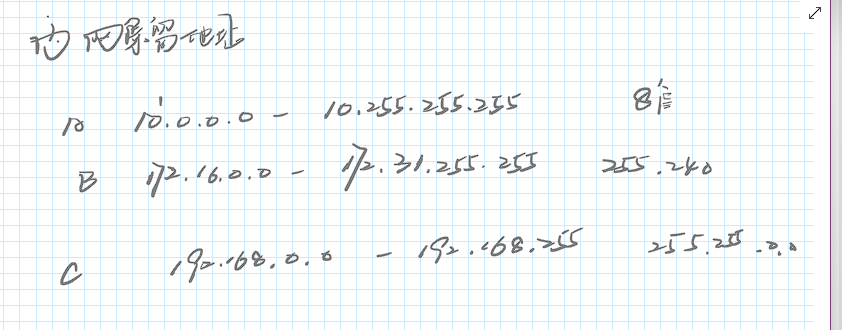 内网保留地址
A 10.0.0.0 - 10.255.255.255 8位
B 172.16.0.0 - 172.31.255.255 255.240
C 192.168.0.0 - 192.168.255 255.255.0.0